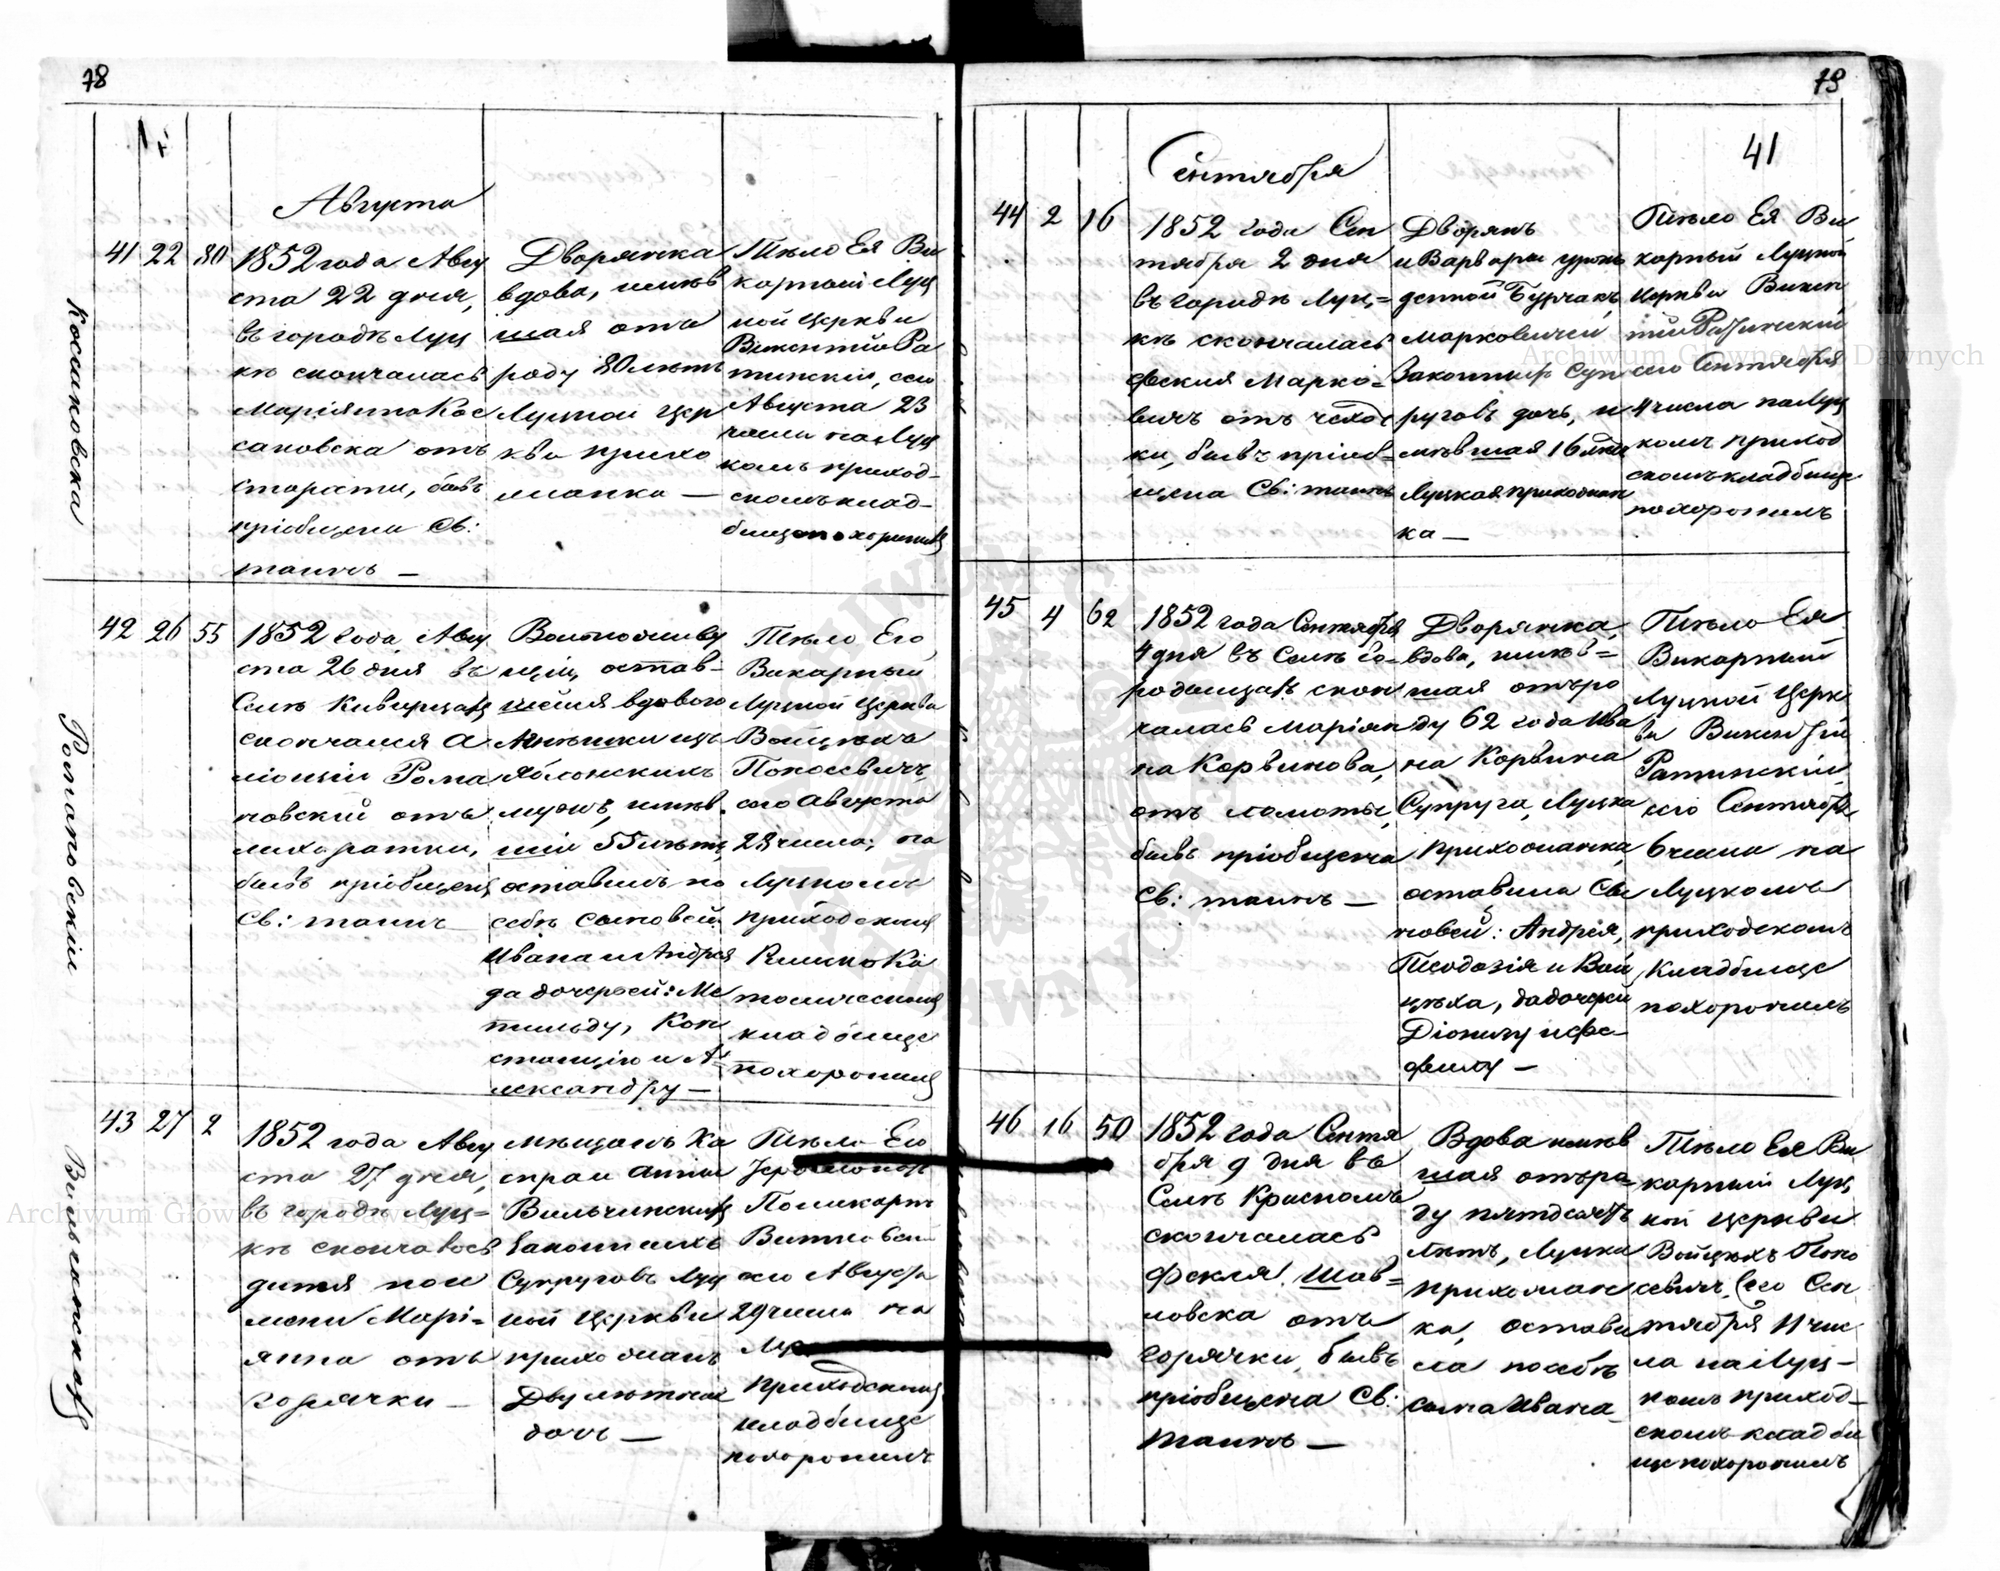 78
Августа
Коссаковска
41 22 80
1852 года Авгу
ста 22 дня,
въ городѣ Луц
кѣ скончалась
Маріянна Кос
саковска отъ
старости, бывъ
пріобщена Св:
таинъ —
Дворянка
вдова, имѣв
шая отъ
роду 80 лѣтъ
Луцкой Цер
кви прихо
жанка —
Тѣло Ея Ви
карный Луц
кой Церкви
Викентій Ра
тинскій, сего
Августа 23
числа на Луц
комъ приход-
скомъ клад-
бищѣ похоронилъ
Романовскій
42 26 55
1852 года Авгу
ста 26 дня въ
Селѣ Киверцахъ
скончался А
лоизій Рома
новскій отъ
лихорадки,
бывъ пріобщенъ
Св: таинъ
остав-
вдового
Яблонскихъ
мужъ, имѣв
шій 55 лѣтъ,
оставилъ по
себѣ сыновей
Ивана и Андрея
да дочерей: Ма
тильду, Кон
станцію и А=
лександру —
Тѣло Его
Викарный
Луцкой Церкви
Войцѣхъ
Покосевичъ
сего Августа
28 числа, на
Луцкомъ
приходскомъ
Римско Ка
толическомъ
кладбище
похоронилъ
Вильчинская
43 27 2
1852 года Авгу
ста 27 дня,
въ городѣ Луц=
кѣ скончалось
дитя по и
мени Марі=
янна отъ
горячки —
Мѣщанъ Ка
спра и Анны
Вильчинскихъ
Законныхъ
Супруговъ Луц
кой Церкви
прихожанъ
Двулѣтняя
дочь —
Тѣло Его
Іеромонахъ
Поликарпъ
Витковскій
сего Августа
29 числа на
приходскомъ
кладбище
похоронилъ
79
41
Сентября
44 2 16
1852 года Сен
тября 2 дня
въ городѣ Луц=
кѣ скончалась
Марко=
вичъ отъ чахот
ки, бывъ пріоб=
щена Св: таинъ
Дворянъ
и Варвары урож
денной Бурчакъ
Марковичей
Законныхъ Суп
руговъ дочь, и
мѣвшая 16 лѣтъ
Луцкая прихожан
ка —
Тѣло Ея Ви
карный Луцкой
Церкви Викен
тій Ратинскій
сего Сентября
4 числа на Луц
комъ приход
скомъ кладбище
похоронилъ
45 4 62
1852 года Сентября
4 дня въ Селѣ Го=
родищахъ скон
чалась Маріян
на Корвинова,
отъ ломоты,
бывъ пріобщена
Св: таинъ —
Дворянка,
вдова, имѣв=
шая отъ ро
ду 62 года Ива
на Корвина
Супруга, Луцка
прихожанка,
оставила Сы
новей: Андрея,
Теодозія и Вой
цѣха, да дочерей
Діонизу и Фе-
филу —
Тѣло Ея
Викарный
Луцкой Церк
ви Викентій
Ратинскій,
сего Сентября
6 числа на
Луцкомъ
приходскомъ
Кладбище
похоронилъ
46 16 50
1852 года Сентя
бря 9 дня въ
Селѣ Красномъ
скончалась
Фекля Шав=
ловска отъ
горячки, бывъ
пріобщена Св:
Таинъ —
Вдова имѣв
шая отъ ро-
ду пятдесятъ
лѣтъ, Луцка
прихожан
ка, остави
ла по себѣ
сына Ивана
Тѣло Ея Ви
карный Луц
кой Церкви
Войцѣхъ Поко
севичъ, сего Сен
тября 11 чис
ла на Луц-
комъ приход-
скомъ кладби
ще похоронилъ
Archiwum Główne Akt Dawnych